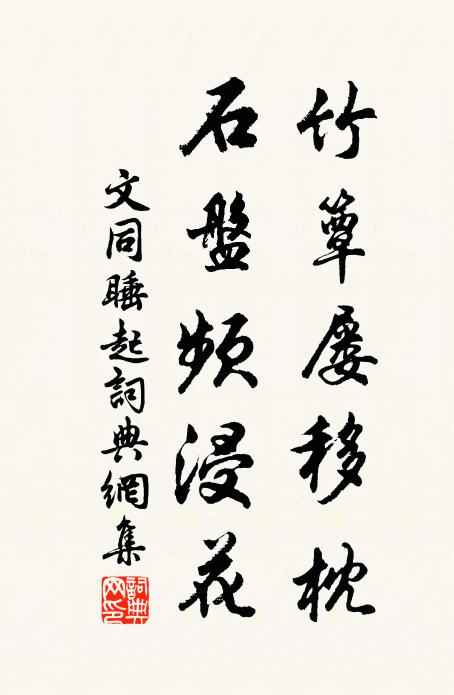 竹簟屢移枕
石盤頻浸花
文同睡起詞典網集
詞典網印